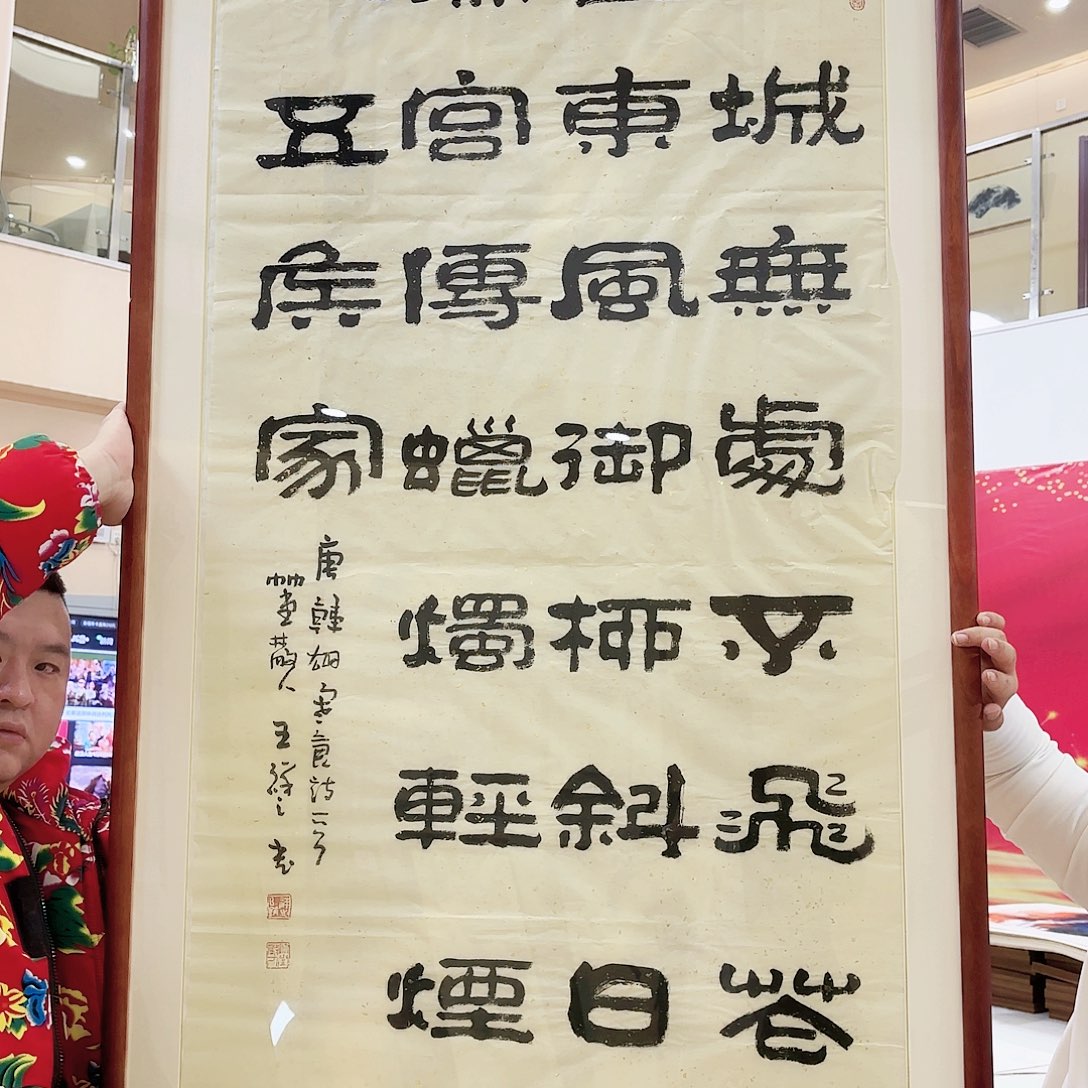 城無處不飛花
東風御柳斜日
宮傳蠟燭輕煙
五侯家
唐韓翃寒食詩一首
散人王
書